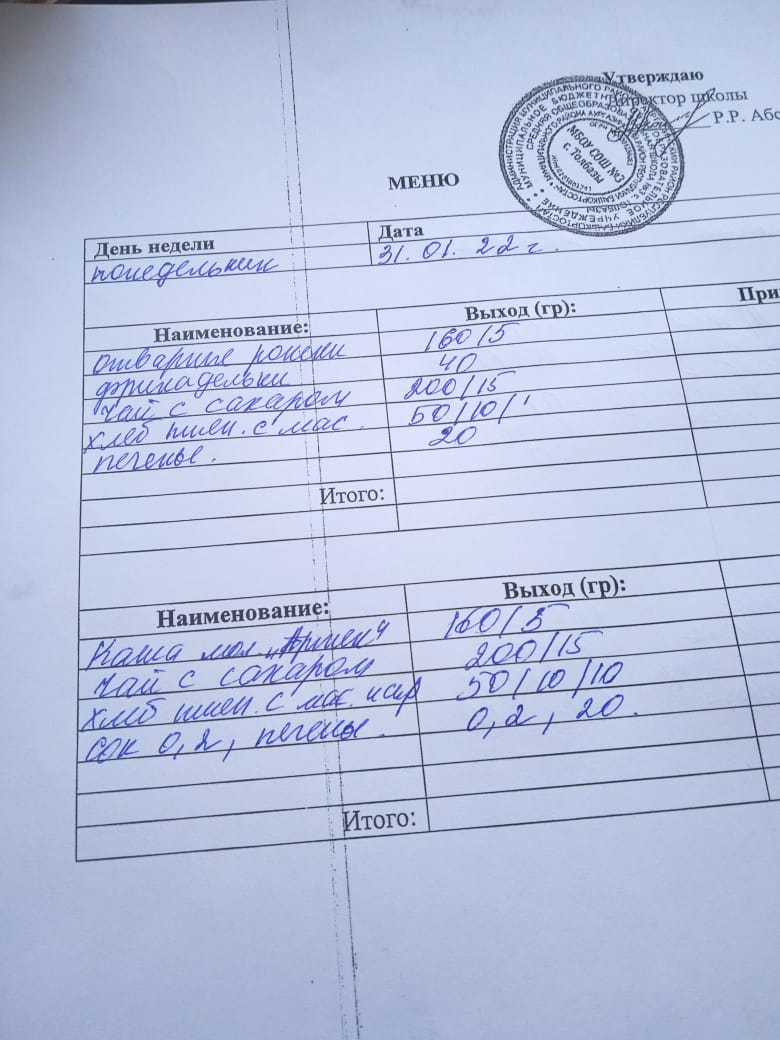 Утверждаю
Директор школы
Р.Р. Абс
МБОУ СОШ №3
с. Толбазы
МЕНЮ
День недели Дата
понедельник 31.01.22 г.
Наименование: Выход (гр): При
отварные рожки 160/5
фрикадельки 40
чай с сахаром 200/15
хлеб пшен. с мас. 50/10/
печенье. 20
Итого:
Наименование: Выход (гр):
Каша мол. 160/5
чай с сахаром 200/15
хлеб пшен. с мас. и сыр 50/10/10
сок 0,2, печенье. 0,2, 20.
Итого: